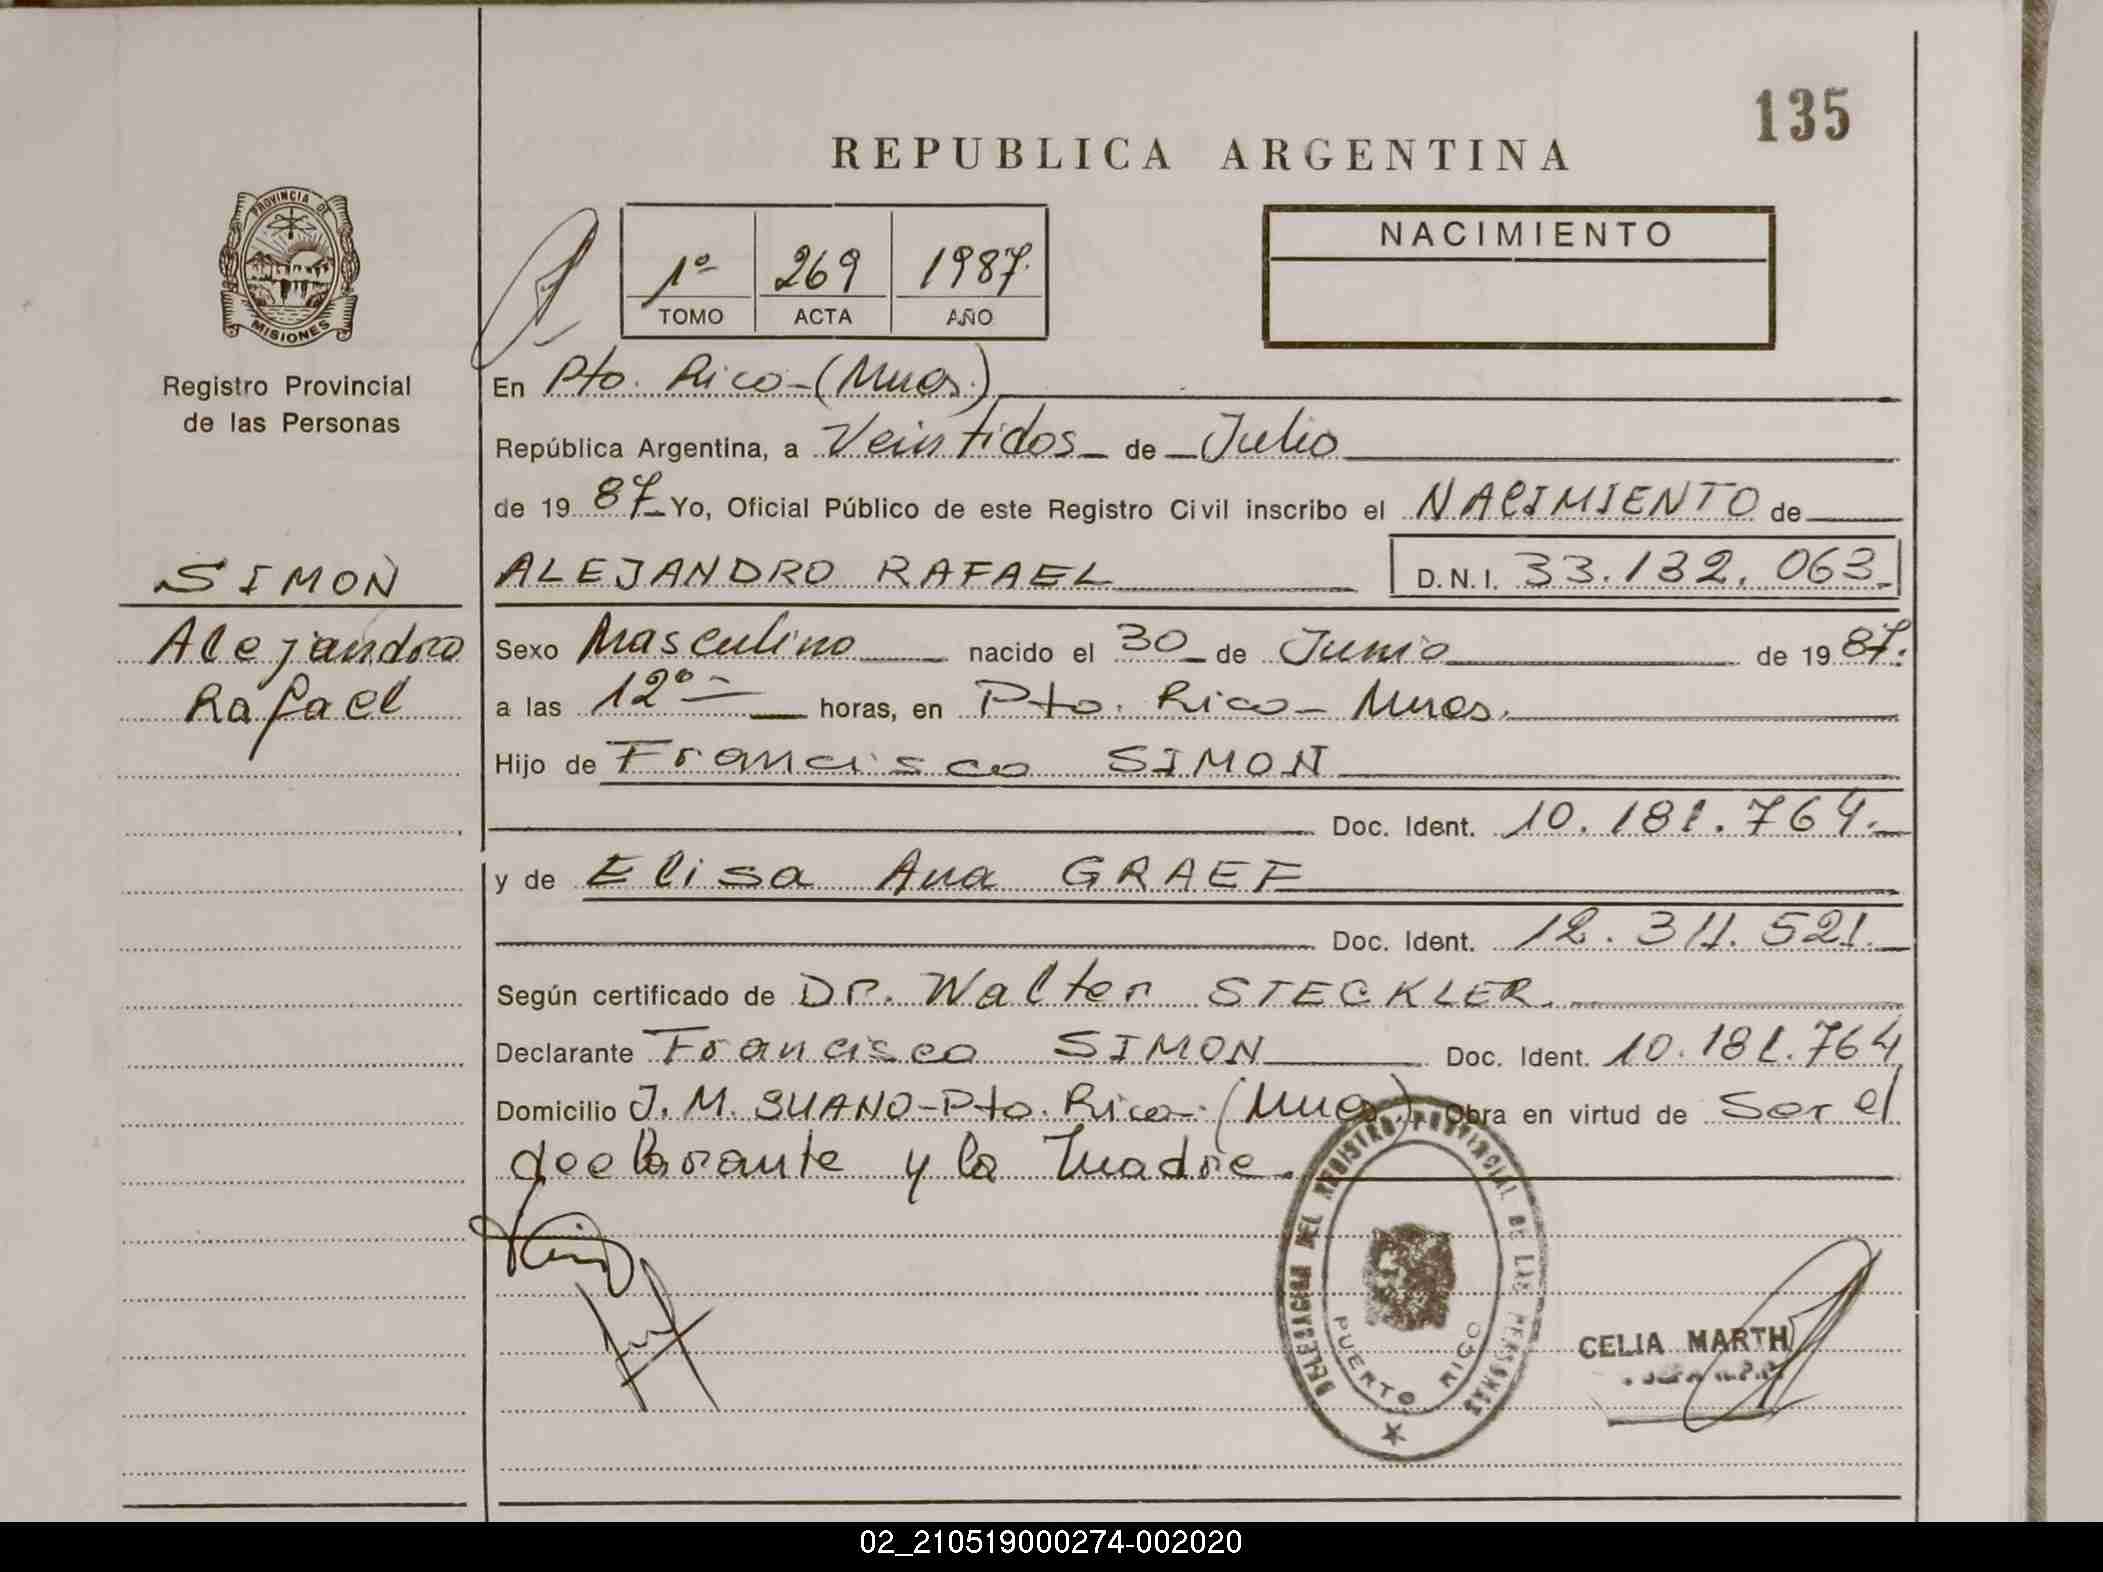 135
REPUBLICA ARGENTINA
PROVINCIA DE
MISIONES
Registro Provincial
de las Personas
1º 269 1987.
TOMO ACTA AÑO
NACIMIENTO
En Pto. Rico-(Mnes.)
República Argentina, a Veintidos de Julio
de 1987 Yo, Oficial Público de este Registro Civil inscribo el NACIMIENTO de
SIMON
ALEJANDRO RAFAEL D.N.I. 33.132.063
Alejandro
Rafael
Sexo Masculino nacido el 30 de Junio de 1987.
a las 12º horas, en Pto. Rico- Mnes.
Hijo de Francisco SIMON
Doc. Ident. 10.181.764.
y de Elisa Ana GRAEF
Doc. Ident. 12.311.521.
Según certificado de Dr. Walter STECKLER.
Declarante Francisco SIMON Doc. Ident. 10.181.764
Domicilio J. M. SUANO-Pto. Rico-(Mnes.) Obra en virtud de Ser el
declarante y la madre.
DELEGACION DEL REGISTRO PROVINCIAL DE LAS PERSONAS
PUERTO RICO
CELIA MARTH
02_210519000274-002020